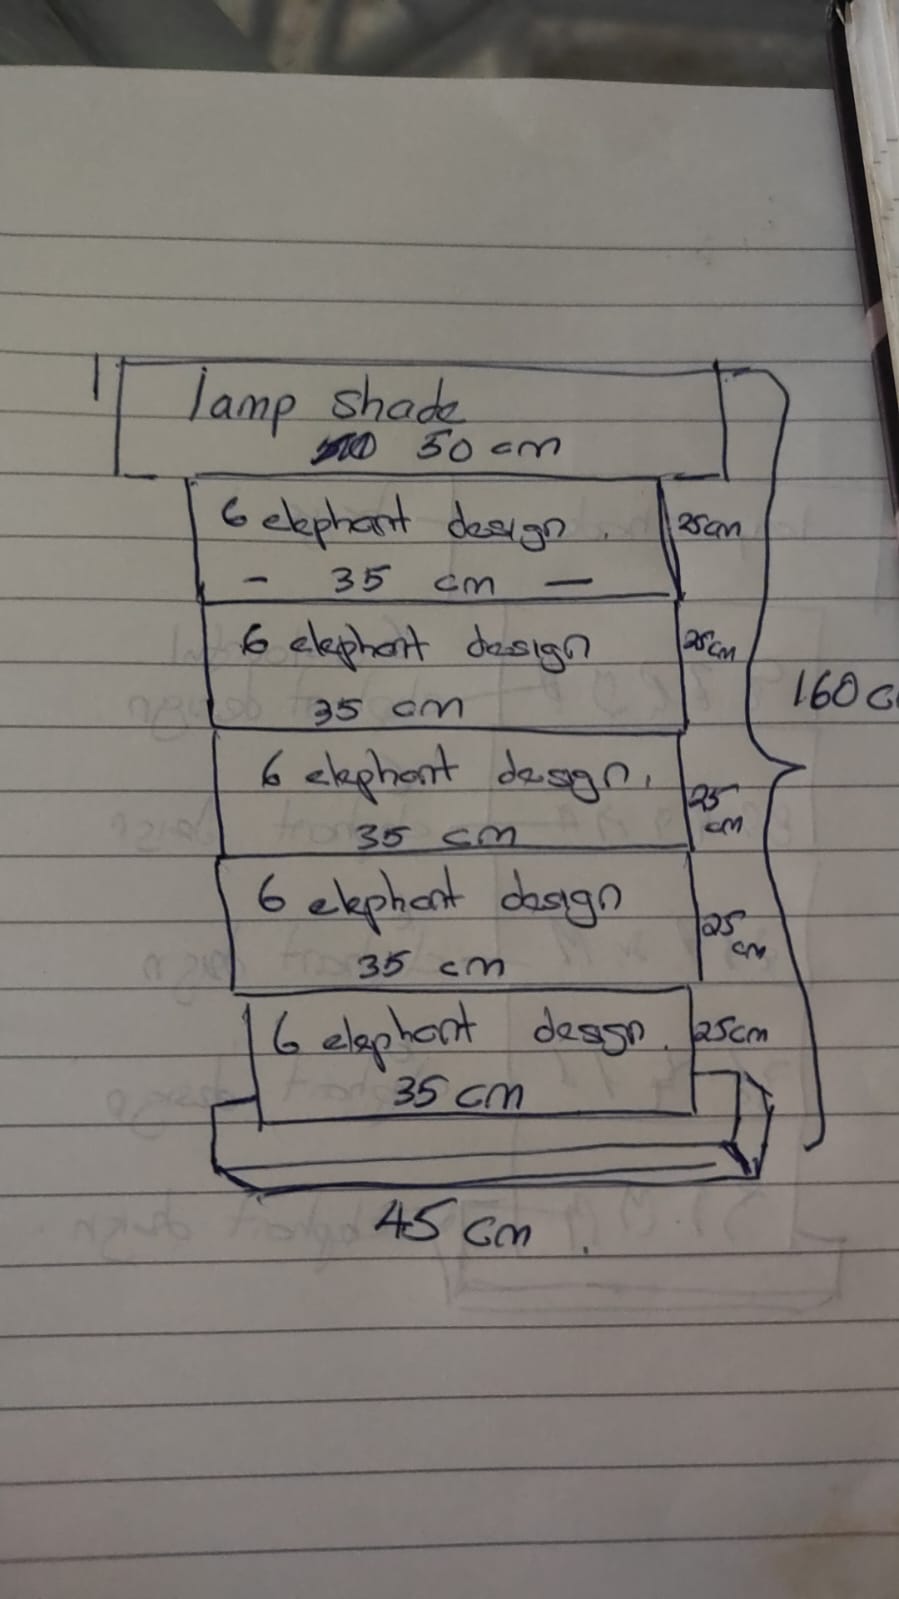 lamp shade
50 cm
6 elephant design
25cm
- 35 cm —
6 elephant design
25cm
35 cm
160 c
6 elephant design.
25
cm
35 cm
6 elephant design
25
cm
35 cm
6 elephant design.
25cm
35 cm
45 cm